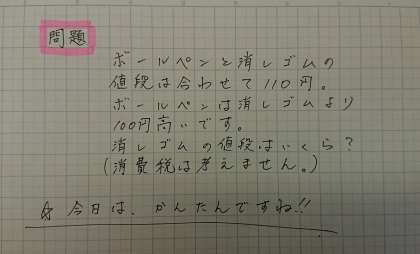 問題
ボールペンと消しゴムの
値段は合わせて110円。
ボールペンは消しゴムより
100円高いです。
消しゴムの値段はいくら?
(消費税は考えません。)
☆ 今日は、かんたんですね!!